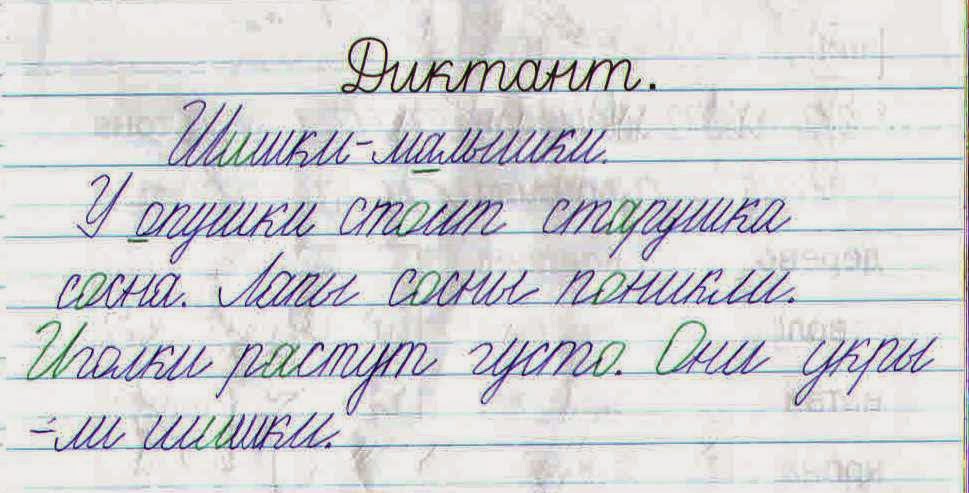 Диктант.
Шишки-малышки.
У опушки стоит старушка
сосна. Лапы сосны поникли.
Иголки растут густо. Они укры
-ли шишки.